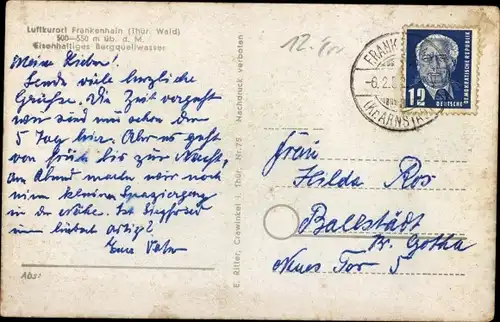 Luftkurort Frankenhain (Thür. Wald)
500—550 m üb. d. M.
Eisenhaltiges Bergquellwasser
Meine Lieben!
Sende viele herzliche
Grüße. Die Zeit vergeht
wir sind nun schon den
5 Tag hier. Aber es geht
von früh bis zur Nacht,
am Abend machen wir noch
einen kleinen Spaziergang
in der Nähe. Ist Siegfried
lieber artig?
Euer Vater
Abs:
E. Ritter, Crawinkel i. Thür. Nr. 75 Nachdruck verboten
12.
FRANK
-6.2.5
(KR. ARNST
12
DEUTSCHE
DEMOKRATISCHE REPUBLIK
Frau
Hilda Ros
Ballstädt
Kr. Gotha
Neues Tor 5